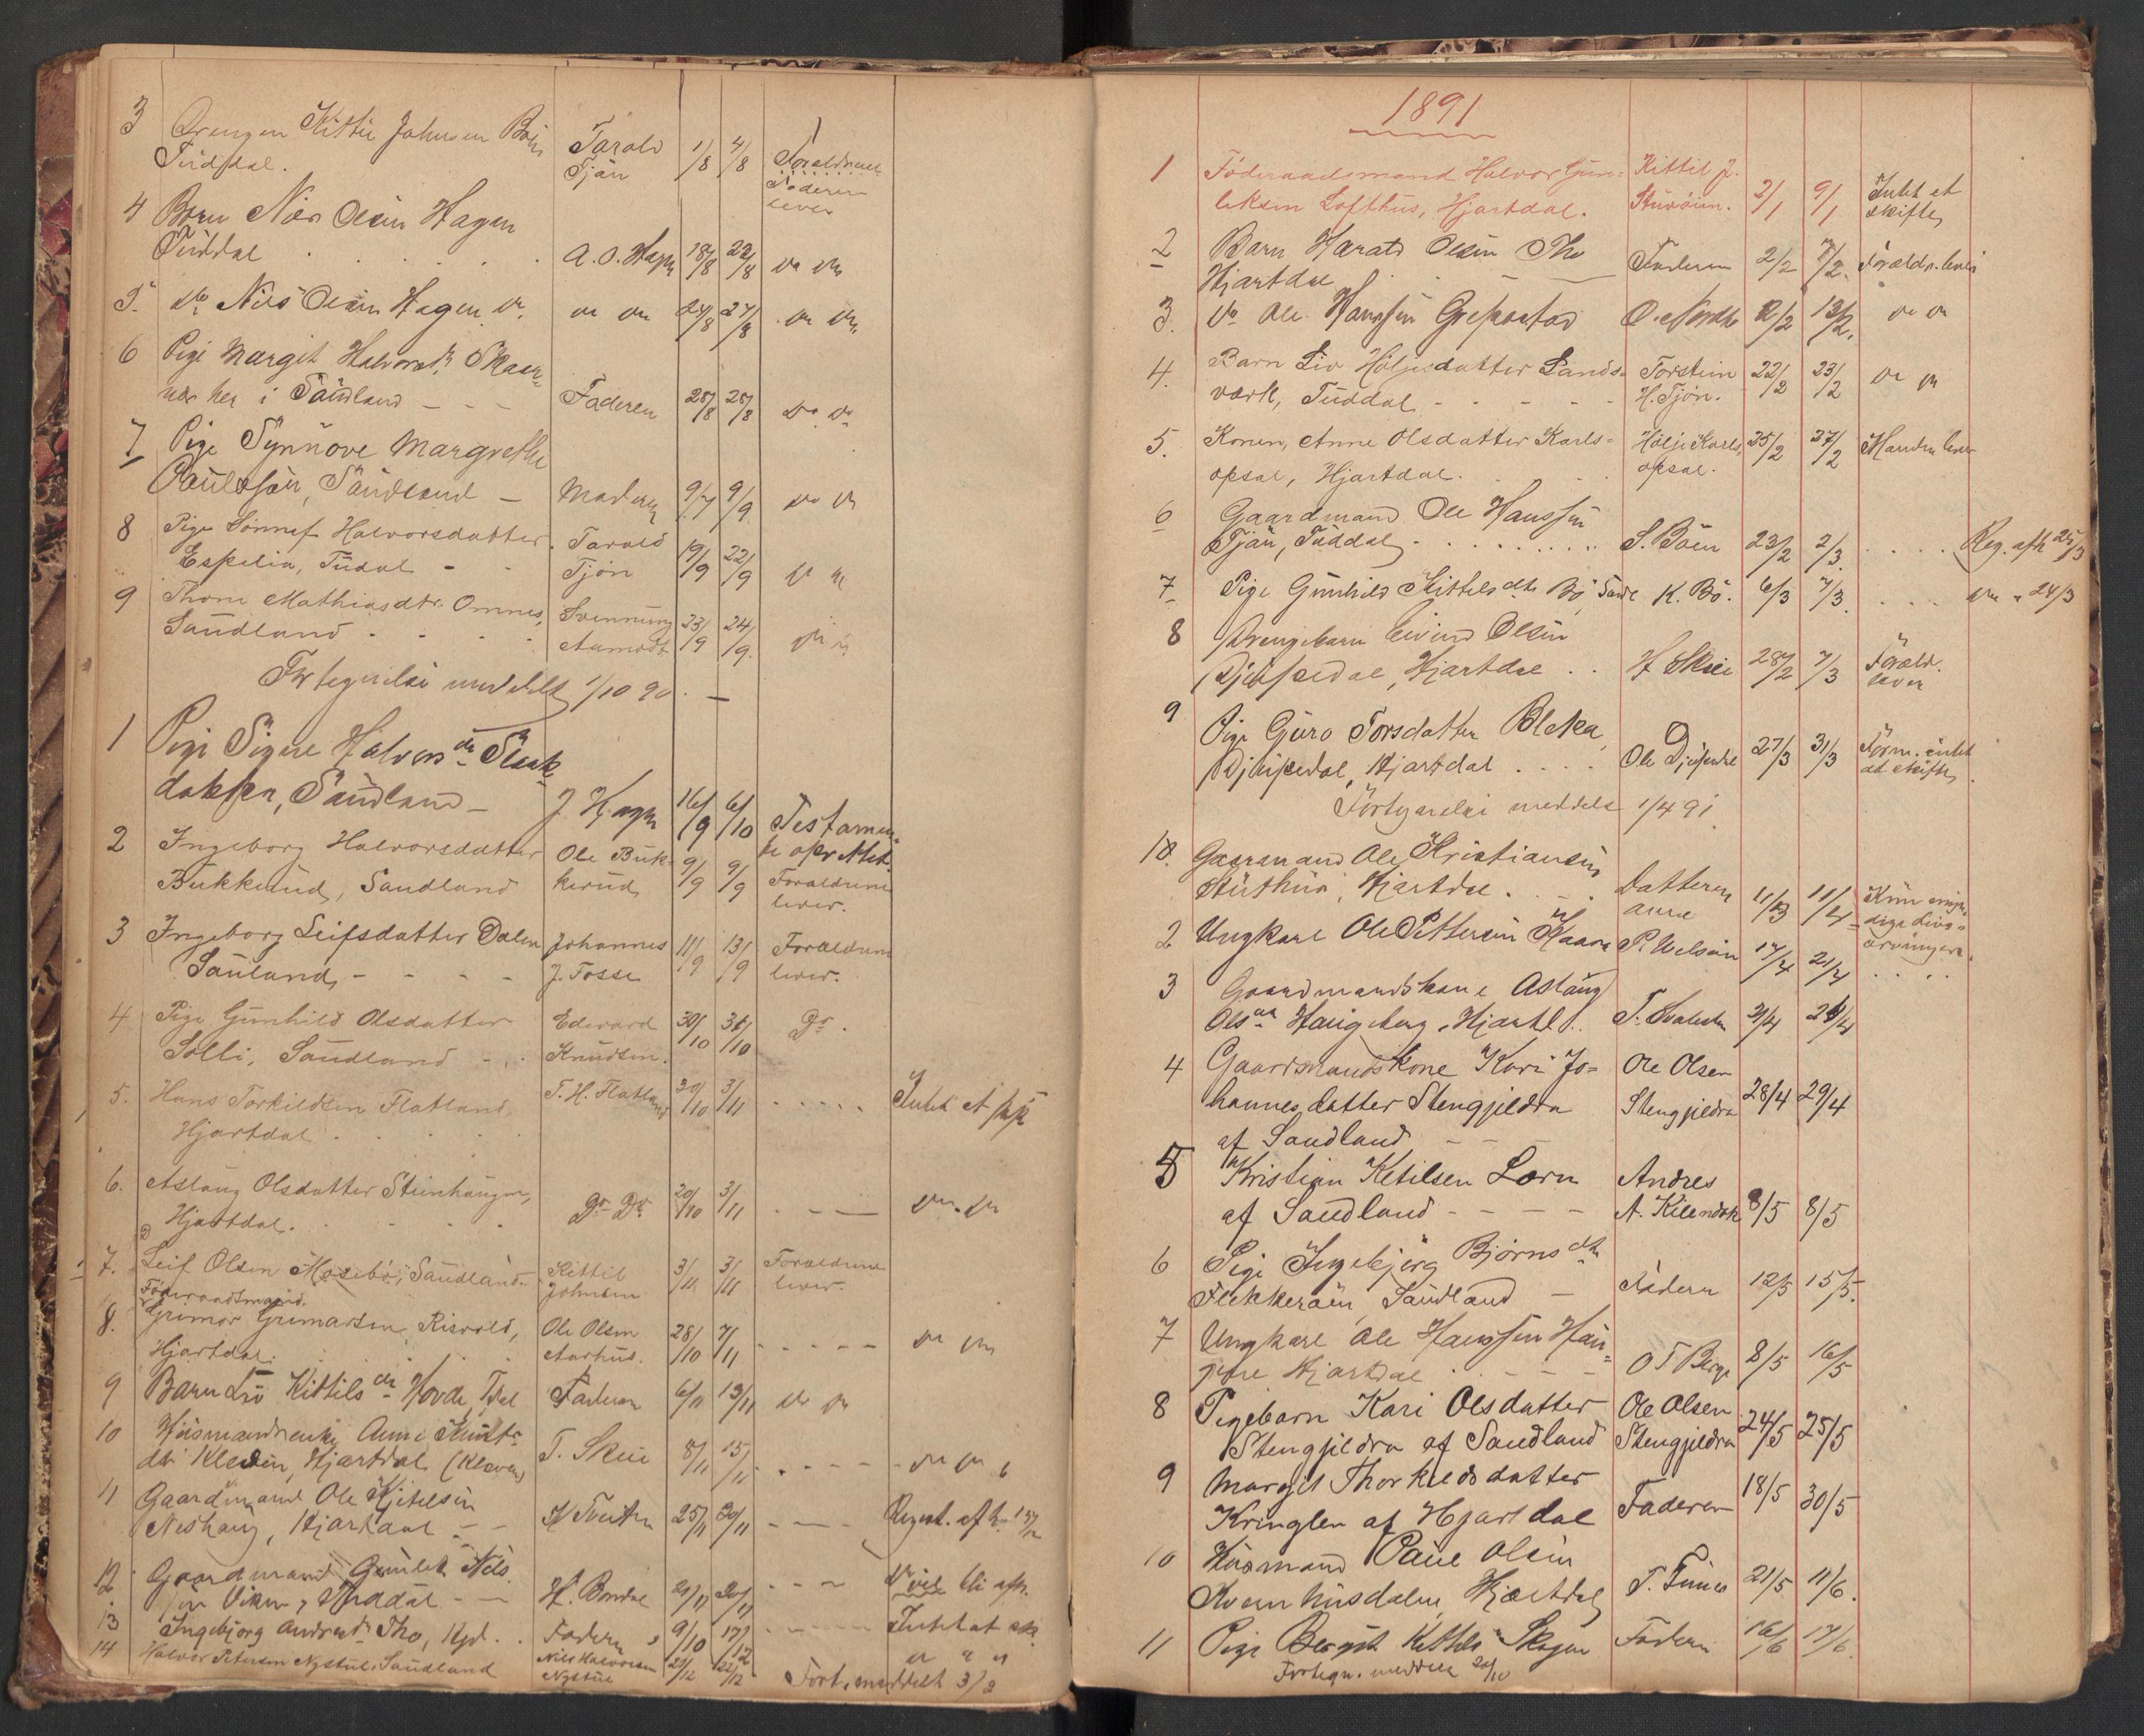 3 Drengen Kittil Johnsen Bøen Tarald 1/8 4/8 Forældrene
Tuddal. Tjøn Faderen
lever
4 Barn Nils Olsen Hagen
Tuddal A. O. Hagen 18/8 22/8 do do
5. do Nils Olsen Hagen do. do do 24/8 27/8 do do
6 Pige Margit Halvorsdr. Skaar-
nes her i Saudland Faderen 28/8 28/8 do do
7 Pige Synnøve Margrethe
Paulsen, Saudland Moderen 9/9 9/9 do do
8 Pige Sønnef Halvorsdatter Tarald 19/9 22/9 do do
Espelia, Tudal Tjøn
9 Thone Mathiasdtr. Omnes, Svennung 23/9 24/9 do do
Saudland Aamodt
Fortegnelse meddelt 1/10 90.
1 Pige Signe Halvorsdr
Saudland J. Hagen 16/9 6/10 Testamen-
te oprettet.
2 Ingeborg Halvorsdatter Ole Buk- 9/9 9/9 Forældrene
Bukkerud, Saudland kerud lever.
3 Ingeborg Leifsdatter Dalen Johannes 11/9 13/9 Forældrene
Sauland, J. Fosse lever.
4 Pige Gunhild Olsdatter Edward 30/10 31/10 Do.
Solli, Saudland Knudsen.
5. Hans Torkildsen Flatland, T. H. Flatland 30/10 3/11 Intet at skifte
Hjartdal
6. Aslaug Olsdatter Steinhaugen, Do Do 20/10 3/11 do do
Hjartdal.
7. Leif Olsen Mosebø, Saudland. Kittil 3/11 3/11 Forældrene
Johnsen lever.
Føderaadsmand.
8. Grimar Grimarsen Risvold, Ole Olsen 28/10 7/11 do do
Hjartdal. Aarhus.
9 Barn Liv Kittilsdr Hovde, Tdal Faderen 6/11 13/11 do do
10 Husmandsenke Anne Knuts-
dr Kleven, Hjartdal (Kleven) T. Skeie 8/11 15/11 do do
11 Gaardmand Ole Kjetelsen
Neshaug, Hjartdal H Tveiten 25/11 30/11 Regist. afh. 15/12
12 Gaardmand Gunlek Nils-
sen Viken, Tuddal H. Bondal 21/11 20/11 do vil bli afh.
13 Ingebjørg Andresdr Tho, Hjd. Faderen 9/10 17/12 Intet at sk.
14 Halvor Petersen Nystul, Saudland Nils Halvorsen 21/12 22/12 " " "
Nystul Fort. meddelt 3/2
1891
1 Føderaadsmand Halvor Gun- Kittil J. 2/1 9/1 Intet at
leksen Lofthus, Hjartdal. Sturøim. skifte
2 Barn Harald Olsen Tho Faderen 2/2 7/2. Forældr. lever
Hjartdal
3. do Ole Hanssen Grepastad O. Nordbø 12/2 13/2. do do
4. Barn Liv Høljesdatter Lands- Torstein 22/2 23/2 do do
værk, Tuddal H. Tjøn.
5. Konen, Anne Olsdatter Karls- Hølje Karls- 25/2 27/2 Manden lever
opsal, Hjartdal. opsal.
6 Gaardmand Ole Hanssen
Tjøn, Tuddal S. Bøen 23/2 2/3. Reg. afh 25/3
7 Pige Gunhild Kittilsdtr Bø, Saudl K. Bø. 6/3 7/3. do " 24/3
8 Drengebarn Eivind Olsen
Djupedal, Hjartdal H Skeie 28/2 7/3 Foreld.
lever
9 Pige Guro Torsdatter Bleka,
Djupedal, Hjartdal Ole Djupedal 27/3 31/3 Form. intet
at skifte
Fortegnelse meddelt 1/4 91.
10. Gaarmand Ole Kristiansen
Hjartdal. Datteren 11/3 11/4 Kun myn-
Anne dige livs-
arvinger.
2 Ungkarl Ole Pettersen Haara P. Nelsen 17/4 21/4
3 Gaardmandskone Aslaug
Olsdr Haugeberg, Hjartd. T. Svalesten 21/4 24/4
4 Gaardmandskone Kari Jo- Ole Olsen
hannesdatter Stengjeldra Stengjeldra 28/4 29/4
af Saudland
5 Kristian Ketilsen Lorn Andres
af Saudland A. Kilendal 8/5 8/5
6 Pige Ingebjørg Bjørnsdtr
Flekkerøen, Saudland Faderen 12/5 15/5.
7 Ungkarl Ole Hanssen Hau-
gene Hjartdal O T Berge 8/5 16/5
8 Pigebarn Kari Olsdatter Ole Olsen
Stengjeldra af Saudland Stengjeldra 24/5 25/5
9 Margit Thorkildsdatter
Kringlen af Hjartdal Faderen 18/5 30/5
10 Husmand Paul Olsen
Kvernhusdalen Hjartdal T. Funes 21/5 11/6.
11 Pige Bergit Kittilsdr Skogen Faderen 16/6 17/6.
Fortegn. meddelt 20/10